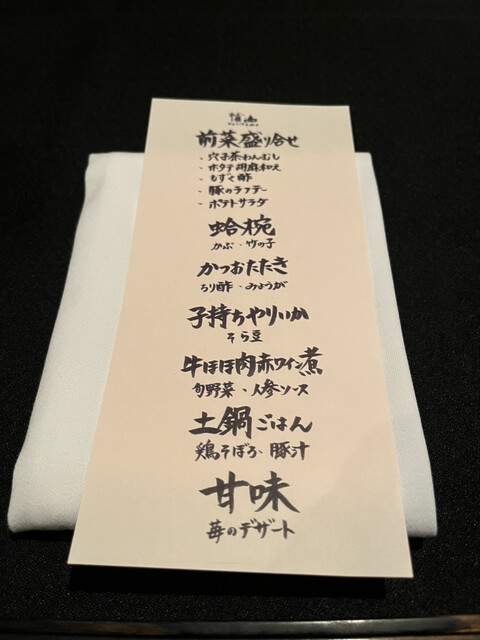 前菜盛り合せ
・穴子茶わんむし
・ホタテ胡麻和え
・もずく酢
・豚のラフテー
・ポテトサラダ
蛤椀
かぶ・竹の子
かつおたたき
ちり酢・みょうが
子持ちやりいか
そら豆
牛ほほ肉赤ワイン煮
旬野菜・人参ソース
土鍋ごはん
鶏そぼろ・豚汁
甘味
苺のデザート